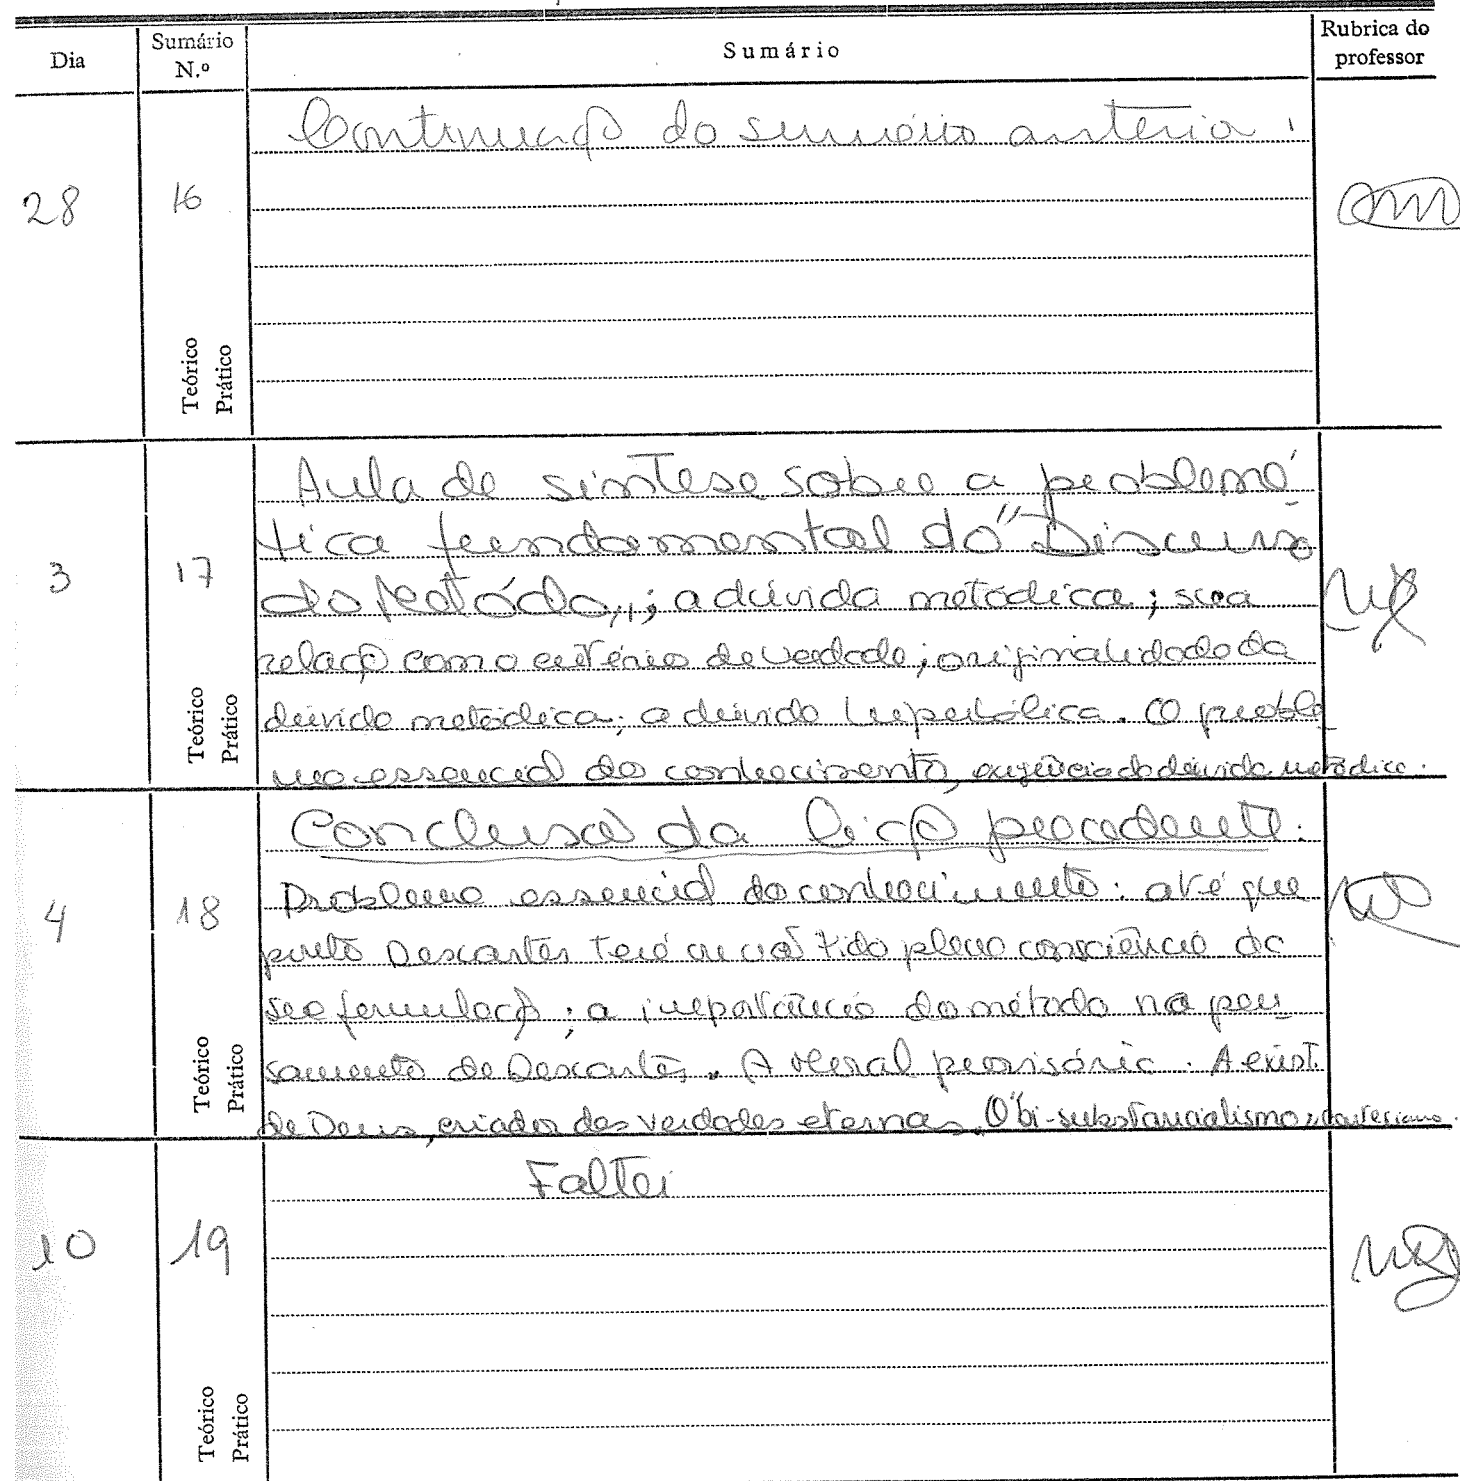 Dia
Sumário
N.º
Sumário
Rubrica do
professor
28
16
Continuaçã do sumário anterior.
Teórico
Prático
3
17
Aula de síntese sobre a problemá
tica fundamental do "Discurso
do Método"; a dúvida metódica; sua
relação com o critério de verdade; originalidade da
dúvida metódica; a dúvida hiperbólica. O proble
ma essencial do conhecimento, exigência da dúvida metódica.
Teórico
Prático
4
18
Conclusão da lição precedente.
Problema essencial do conhecimento: até que
ponto Descartes terá ou não tido plena consciência da
sua formulação; a importância do método no pen-
samento de Descartes. A Moral provisória. A exist.
de Deus, criador das verdades eternas. O bi-substancialismo cartesiano.
Teórico
Prático
10
19
Faltei
Teórico
Prático